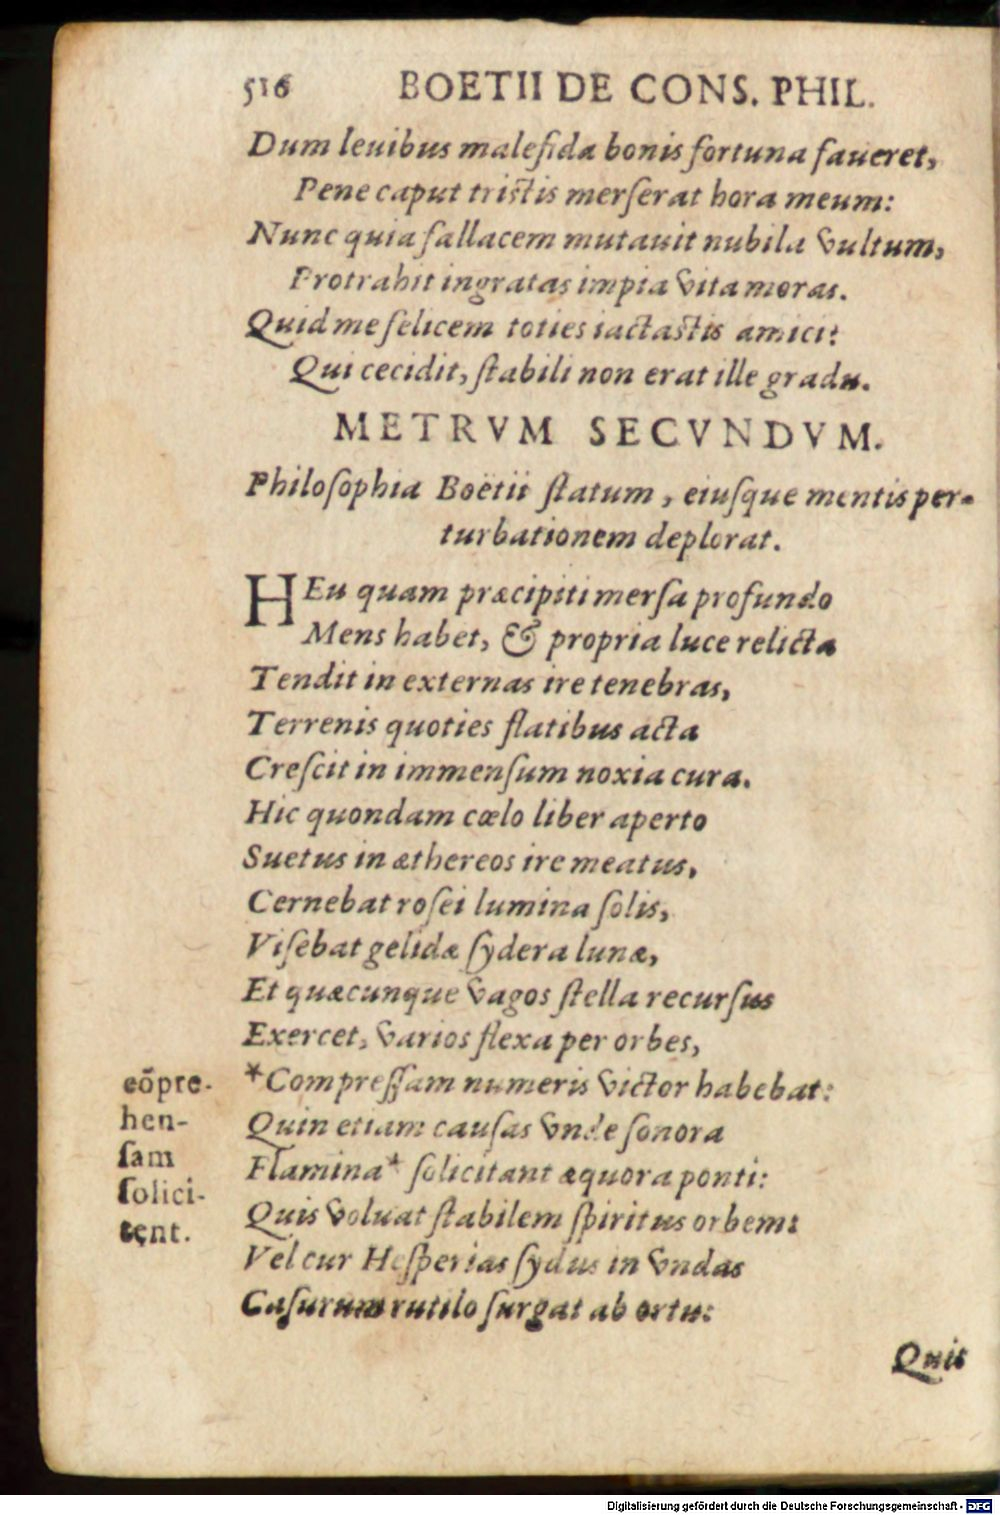 516 BOETII DE CONS. PHIL.
Dum leuibus malefida bonis fortuna faueret,
Pene caput tristis merſerat hora meum:
Nunc quia fallacem mutauit nubila vultum,
Protrahit ingratas impia vita moras.
Quid me felicem toties iactastis amici?
Qui cecidit, ſtabili non erat ille gradu.
METRVM SECVNDVM.
Philoſophia Boëtii ſtatum, eiuſque mentis per-
turbationem deplorat.
HEu quam præcipiti merſa profundo
Mens habet, & propria luce relicta
Tendit in externas ire tenebras,
Terrenis quoties flatibus acta
Creſcit in immenſum noxia cura.
Hic quondam cœlo liber aperto
Suetus in æthereos ire meatus,
Cernebat roſei lumina ſolis,
Viſebat gelidæ ſydera lunæ,
Et quæcunque vagos ſtella recurſus
Exercet, varios flexa per orbes,
*Compreſſam numeris victor habebat:
Quin etiam cauſas vnde ſonora
Flamina* ſolicitant æquora ponti:
Quis voluat ſtabilem ſpiritus orbem:
Vel cur Heſperias ſydus in vndas
Caſurum rutilo ſurgat ab ortu:
eõpre-
hen-
ſam
ſolici-
tent.
Quis
Digitalisierung gefördert durch die Deutsche Forschungsgemeinschaft - DFG